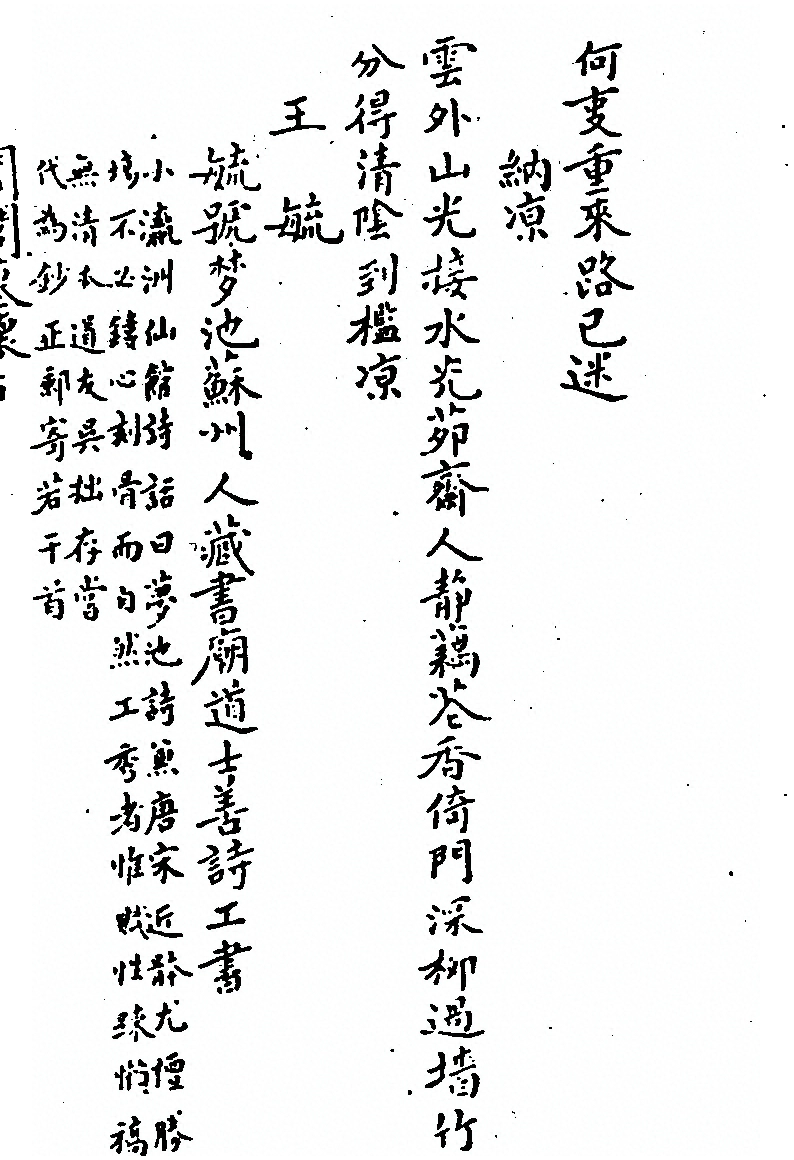 何事重來路已迷
納凉
雲外山光接水光茆齋人静藕花香倚門深柳過墙竹
分得清陰到檻凉
王毓
毓號梦池蘇州人藏書廟道士善詩工書
小瀛洲仙館詩話曰夢池詩無唐宋近體尤擅勝
場不必鑄心刻骨而自然工秀者惟賤性疎懶稿
無清本道友吳拙存嘗
代為鈔正郵寄若干首